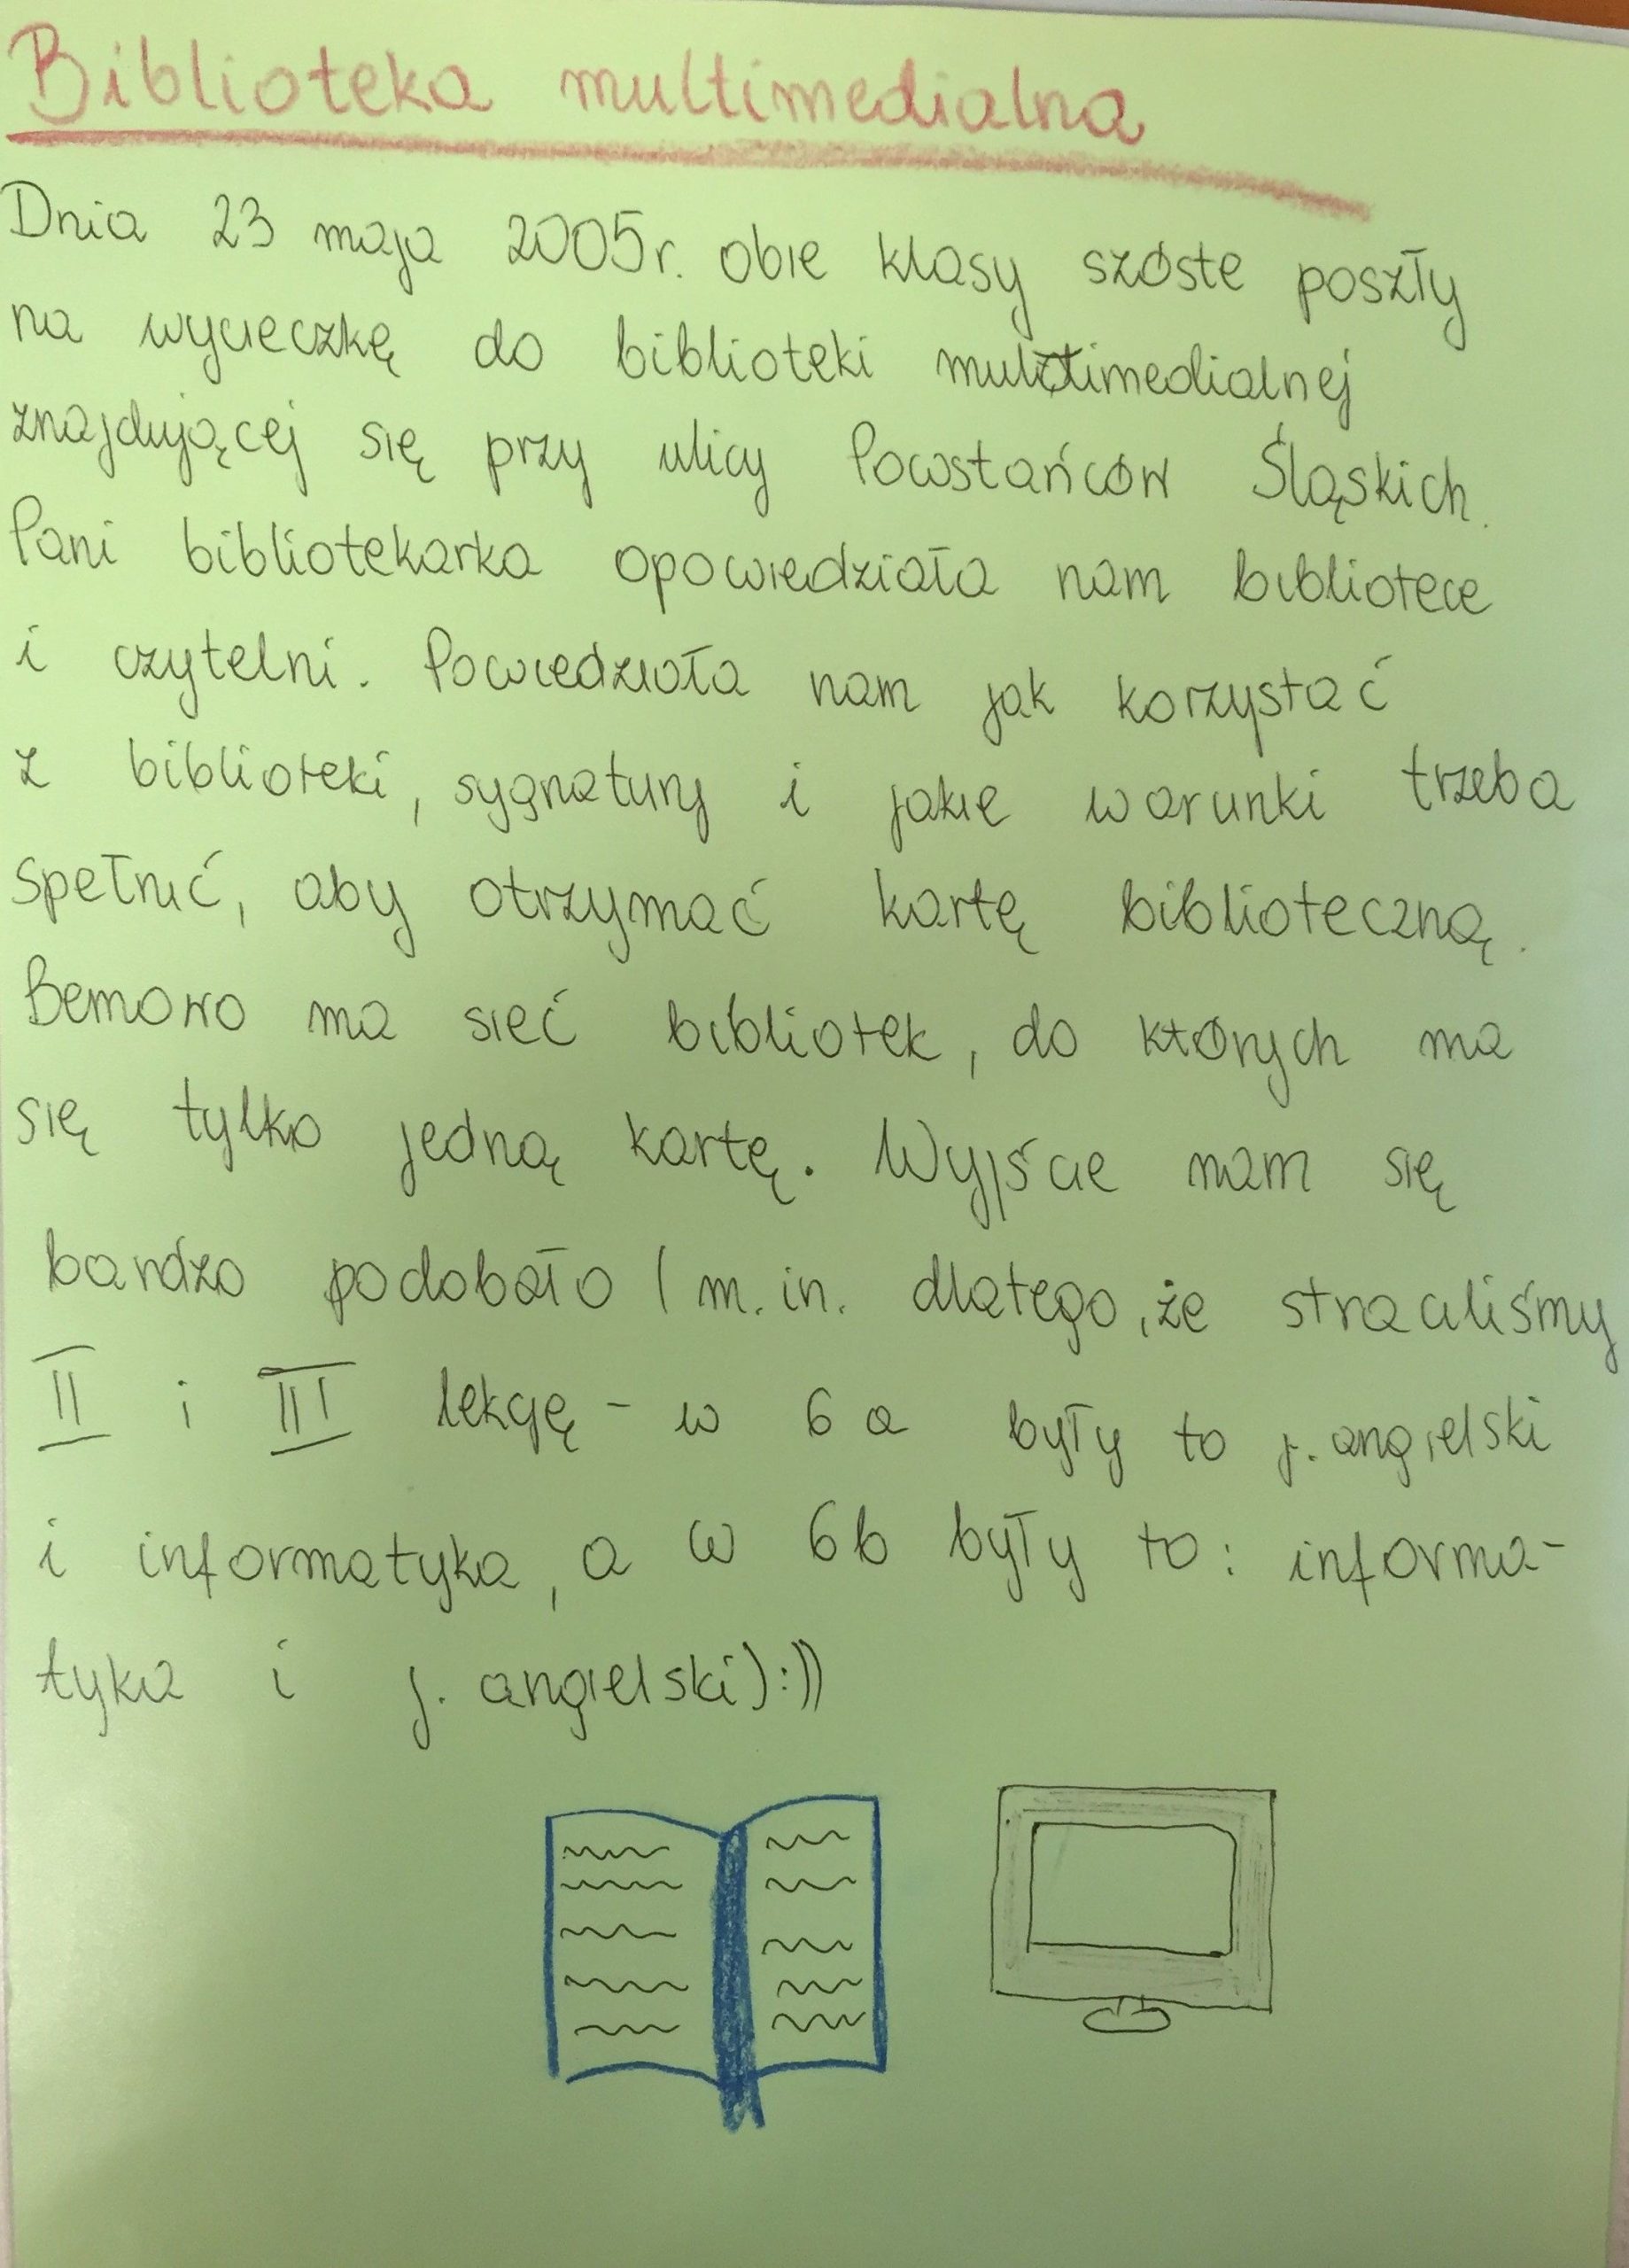 Biblioteka multimedialna
Dnia 23 maja 2005r. obie klasy szóste poszły
na wycieczkę do biblioteki multimedialnej
znajdującej się przy ulicy Powstańców Śląskich.
Pani bibliotekarka opowiedziała nam bibliotece
i czytelni. Powiedziała nam jak korzystać
z biblioteki, sygnatury i jakie warunki trzeba
spełnić, aby otrzymać kartę biblioteczną.
Bemowo ma sieć bibliotek, do których ma
się tylko jedną kartę. Wyjście nam się
bardzo podobało (m.in. dlatego, że straciliśmy
II i III lekcję - w 6a były to j. angielski
i informatyka, a w 6b były to: informa-
tyka i j. angielski):))